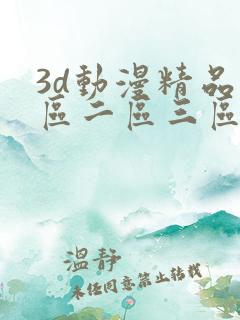 3d動漫精品
區二區三區
溫靜
未经同意禁止转载